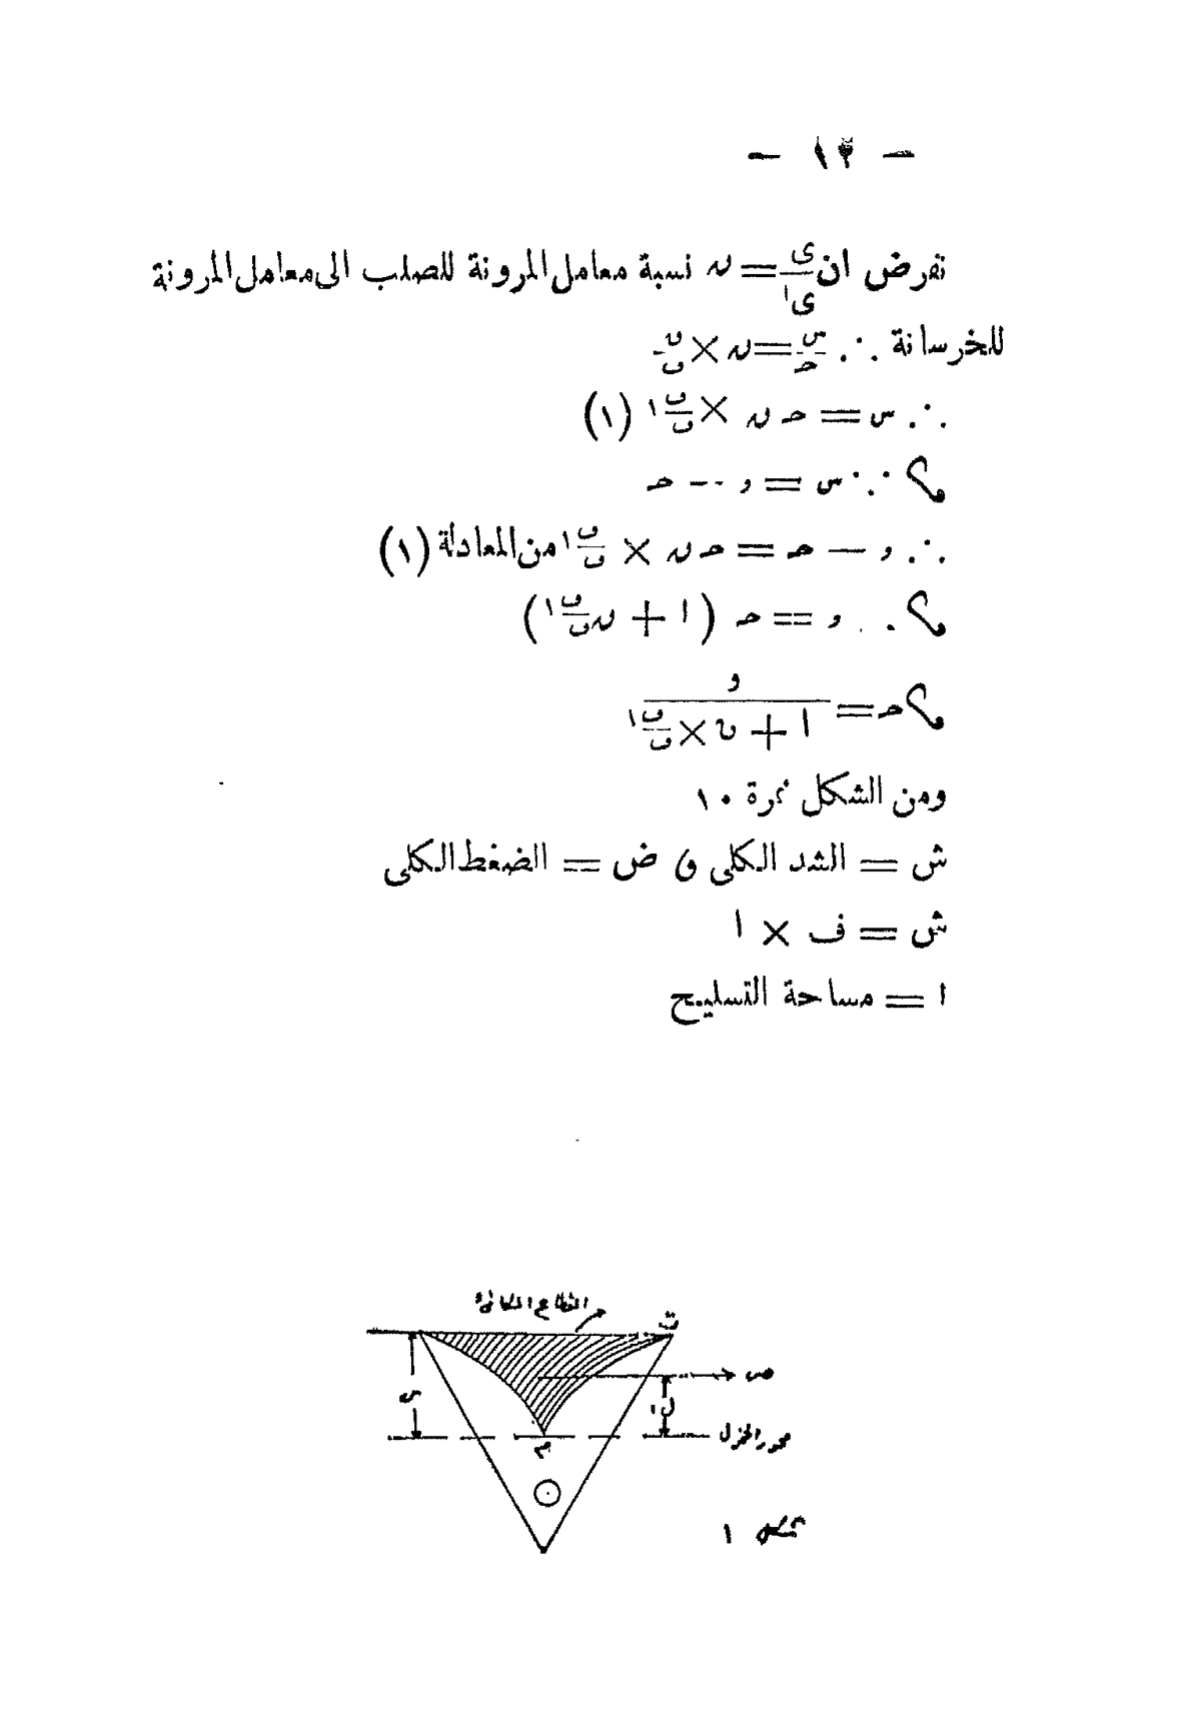 — ١٣ —
نفرض ان ى/ى١ = ں نسبة معامل المرونة للصلب الى معامل المرونة
للخرسانة ∴ س/حـ = ں × ڡ/ف
∴ س = حـ ں × ف١/ف (١)
ک ∵ س = و -- حـ
∴ و — حـ = حـ ں × ف١/ف من المعادلة (١)
ک . و = حـ (١ + ں ف١/ف)
ک حـ = و / (١ + ں × ف١/ف)
ومن الشكل نمرة ١٠
ش = الشد الكلى ک ض = الضغط الكلى
ش = ف × ا
ا = مساحة التسليح
ت
س
ل١
م